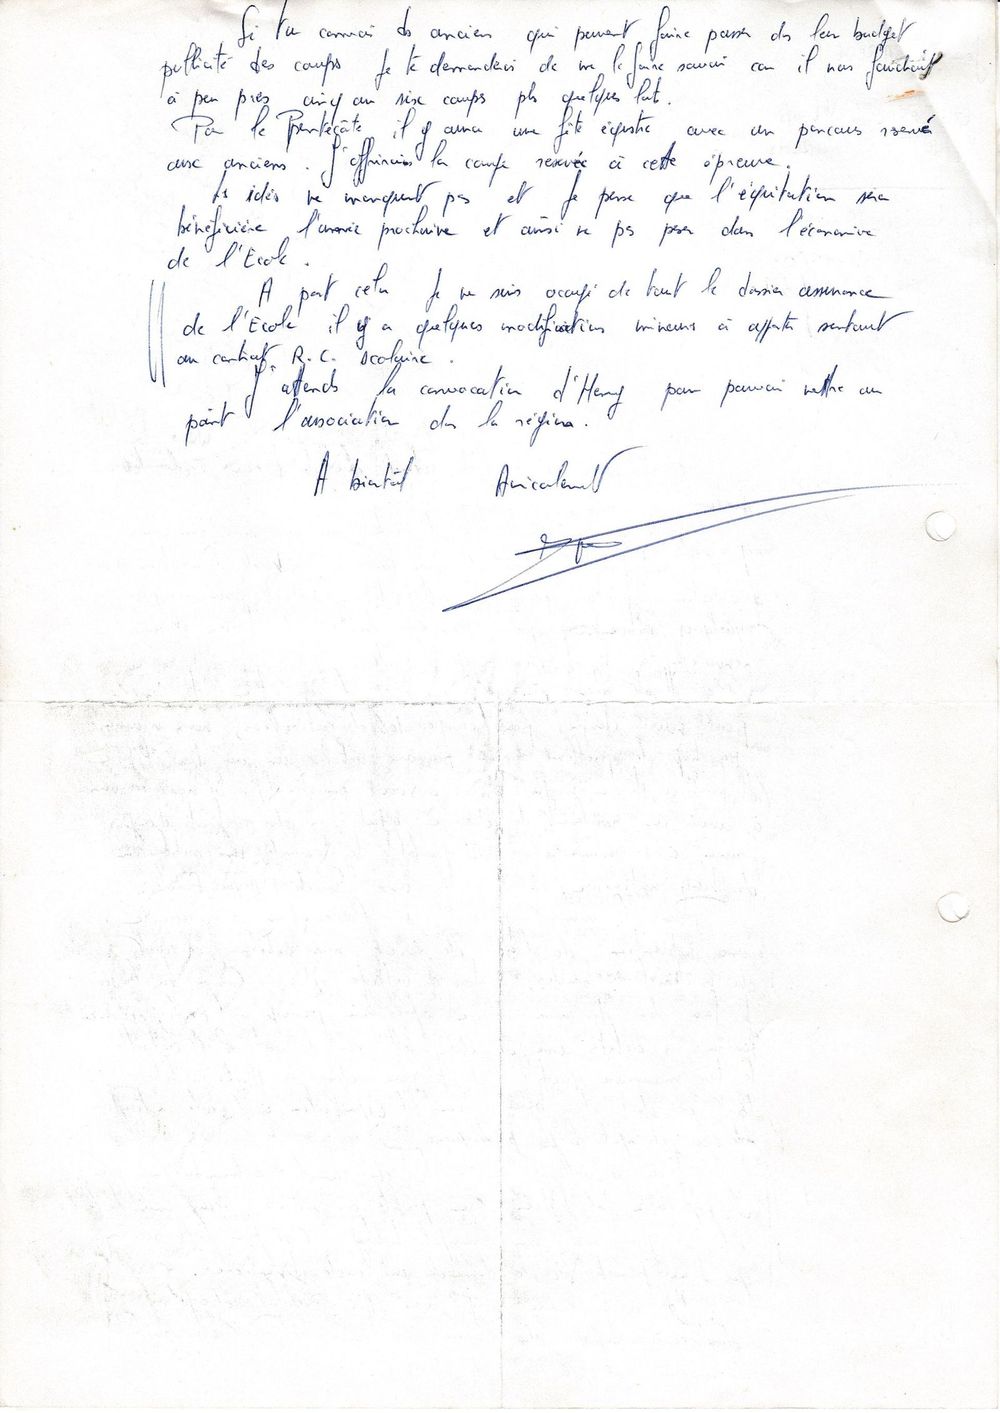 Si tu connai des anciens qui peuvent faire passer ds leur budget
publicité des coups Je te demanderai de me le faire savoir car il nous faudrait
à peu près cinq ou six coups pls quelques lots.
Pour la Pentecôte il y aura une fête équestre avec un parcours reservé
aux anciens. J'offrirais la coupe reservée à cette épreuve.
Les idées ne manquent pas et Je pense que l'équitation sera
bénéficiaire l'année prochaine et ainsi ne pas peser dans l'économie
de l'Ecole.
A part cela Je me suis occupé de tout le dossier assurance
de l'Ecole il y a quelques modifications mineures à apporter surtout
au contrat R.C. scolaire.
J'attends la convocation d'Henry pour pouvoir mettre au
point l'association ds la région.
A bientôt Amicalement